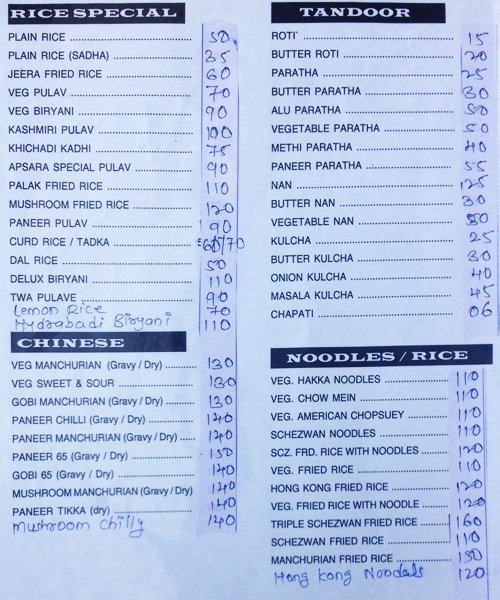 RICE SPECIAL
PLAIN RICE 50
PLAIN RICE (SADHA) 35
JEERA FRIED RICE 60
VEG PULAV 70
VEG BIRYANI 90
KASHMIRI PULAV 100
KHICHADI KADHI 75
APSARA SPECIAL PULAV 90
PALAK FRIED RICE 110
MUSHROOM FRIED RICE 120
PANEER PULAV 90
CURD RICE / TADKA 60/70
DAL RICE 50
DELUX BIRYANI 110
TWA PULAVE 90
Lemon Rice 70
Hydrabadi Biryani 110
CHINESE
VEG MANCHURIAN (Gravy / Dry) 130
VEG SWEET & SOUR 130
GOBI MANCHURIAN (Gravy / Dry) 130
PANEER CHILLI (Gravy / Dry) 140
PANEER MANCHURIAN (Gravy / Dry) 140
PANEER 65 (Gravy / Dry) 150
GOBI 65 (Gravy / Dry) 140
MUSHROOM MANCHURIAN (Gravy / Dry) 140
PANEER TIKKA (dry) 140
Mushroom Chilly 140
TANDOOR
ROTI 15
BUTTER ROTI 20
PARATHA 25
BUTTER PARATHA 30
ALU PARATHA 50
VEGETABLE PARATHA 50
METHI PARATHA 40
PANEER PARATHA 55
NAN 25
BUTTER NAN 30
VEGETABLE NAN 50
KULCHA 25
BUTTER KULCHA 30
ONION KULCHA 40
MASALA KULCHA 45
CHAPATI 06
NOODLES / RICE
VEG. HAKKA NOODLES 110
VEG. CHOW MEIN 110
VEG. AMERICAN CHOPSUEY 110
SCHEZWAN NOODLES 110
SCZ. FRD. RICE WITH NOODLES 120
VEG. FRIED RICE 110
HONG KONG FRIED RICE 120
VEG. FRIED RICE WITH NOODLE 120
TRIPLE SCHEZWAN FRIED RICE 160
SCHEZWAN FRIED RICE 110
MANCHURIAN FRIED RICE 150
Hong Kong Noodels 120